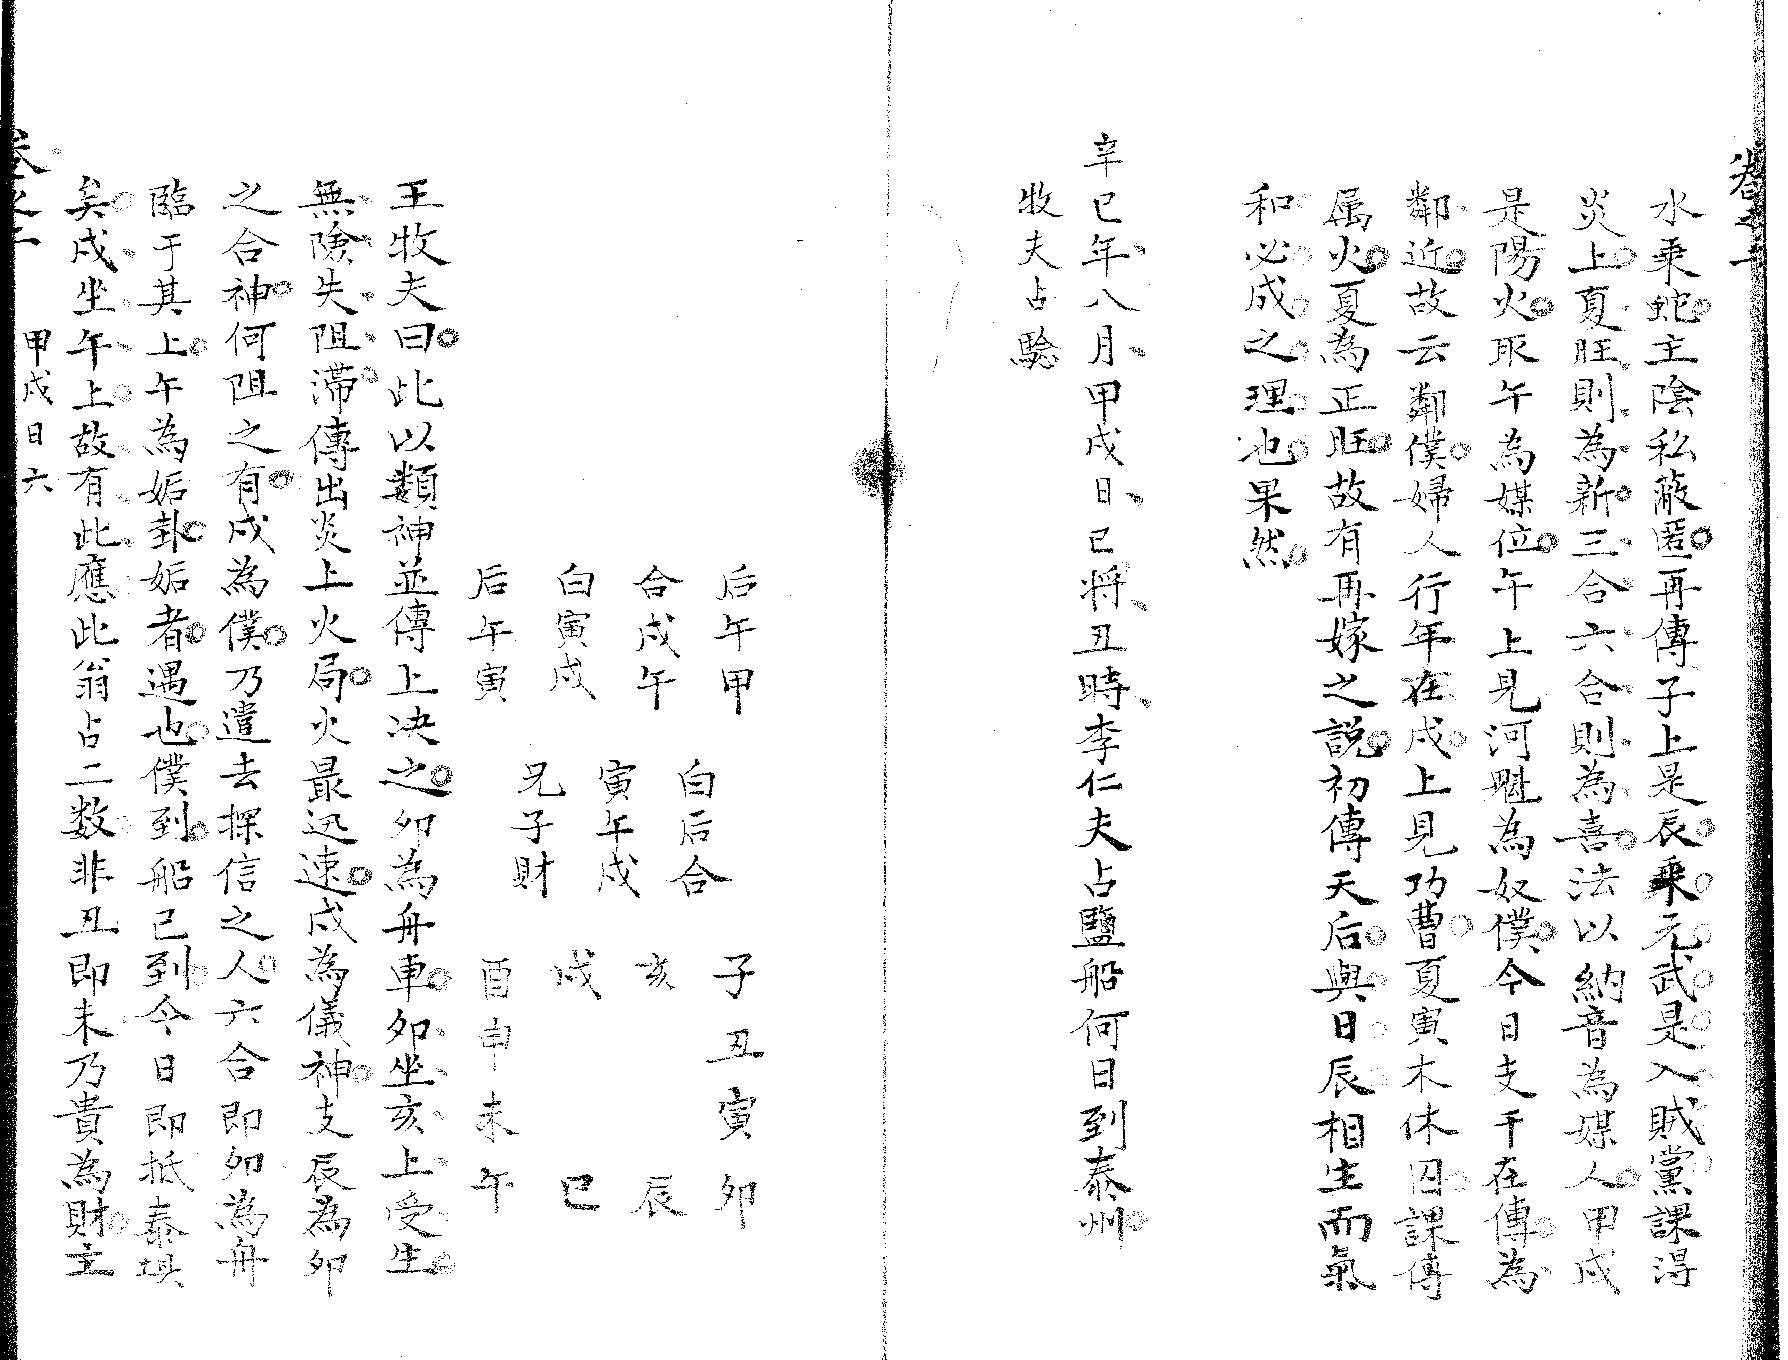 卷之二
水乘蛇主陰私蔽匿再傳子上是辰乘元武是入賊黨課得
炎上夏旺則為新三合六合則為喜法以納音為媒人甲戌
是陽火取午為媒位午上見河魁為奴僕今日支干在傳為
鄰近故云鄰僕婦人行年在戌上見功曹夏寅木休囚課傳
属火夏為正旺故有再嫁之説初傳天后與日辰相生而氣
和必成之理也果然
辛巳年八月甲戌日巳将丑時李仁夫占鹽船何日到泰州
牧夫占驗
后午甲　白后合　子丑寅卯
合戌午　寅午戌　亥　　辰
白寅戌　兄子財　戌　　巳
后午寅　　　　　酉申未午
王牧夫曰此以類神並傳上决之卯為舟車卯坐亥上受生
無險失阻滯傳出炎上火局火最迅速戌為儀神支辰為卯
之合神何阻之有戌為僕乃遣去探信之人六合即卯為舟
臨于其上午為姤卦姤者遇也僕到船已到今日即抵泰壩
矣戌坐午上故有此應此翁占二数非丑即未乃貴為財主
卷之二　甲戌日六